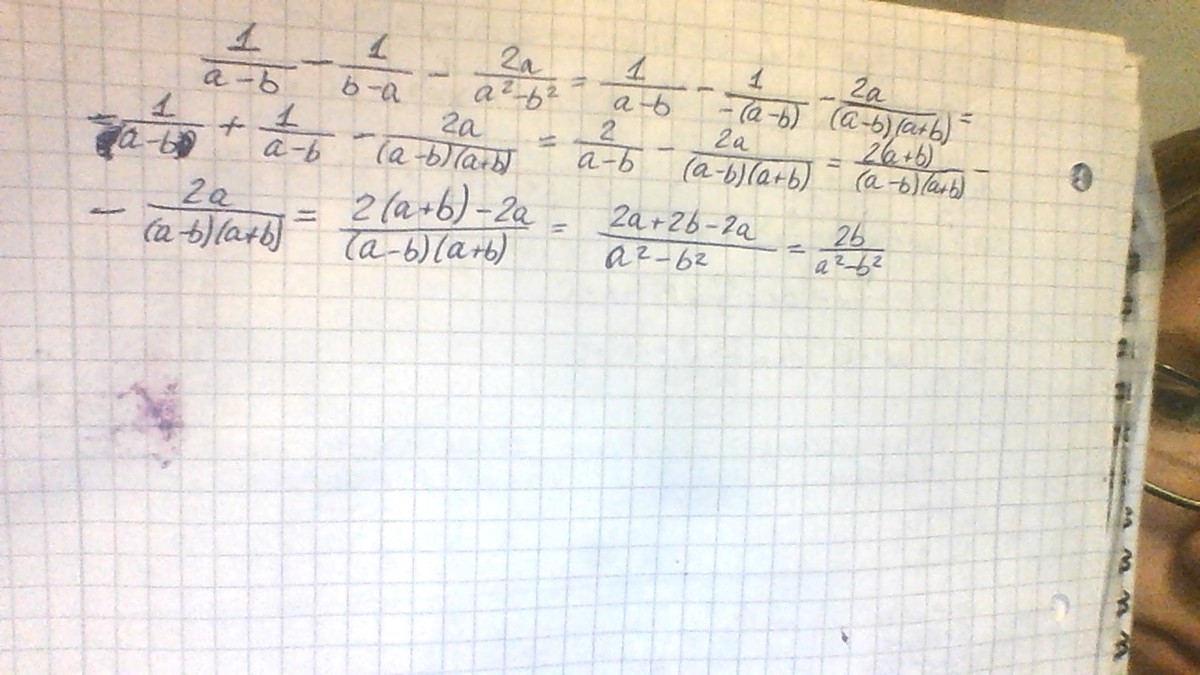 1/(a-b) - 1/(b-a) - 2a/(a²-b²) = 1/(a-b) - 1/(-(a-b)) - 2a/((a-b)(a+b)) =
= 1/(a-b) + 1/(a-b) - 2a/((a-b)(a+b)) = 2/(a-b) - 2a/((a-b)(a+b)) = 2(a+b)/((a-b)(a+b)) -
- 2a/((a-b)(a+b)) = (2(a+b)-2a)/((a-b)(a+b)) = (2a+2b-2a)/(a²-b²) = 2b/(a²-b²)